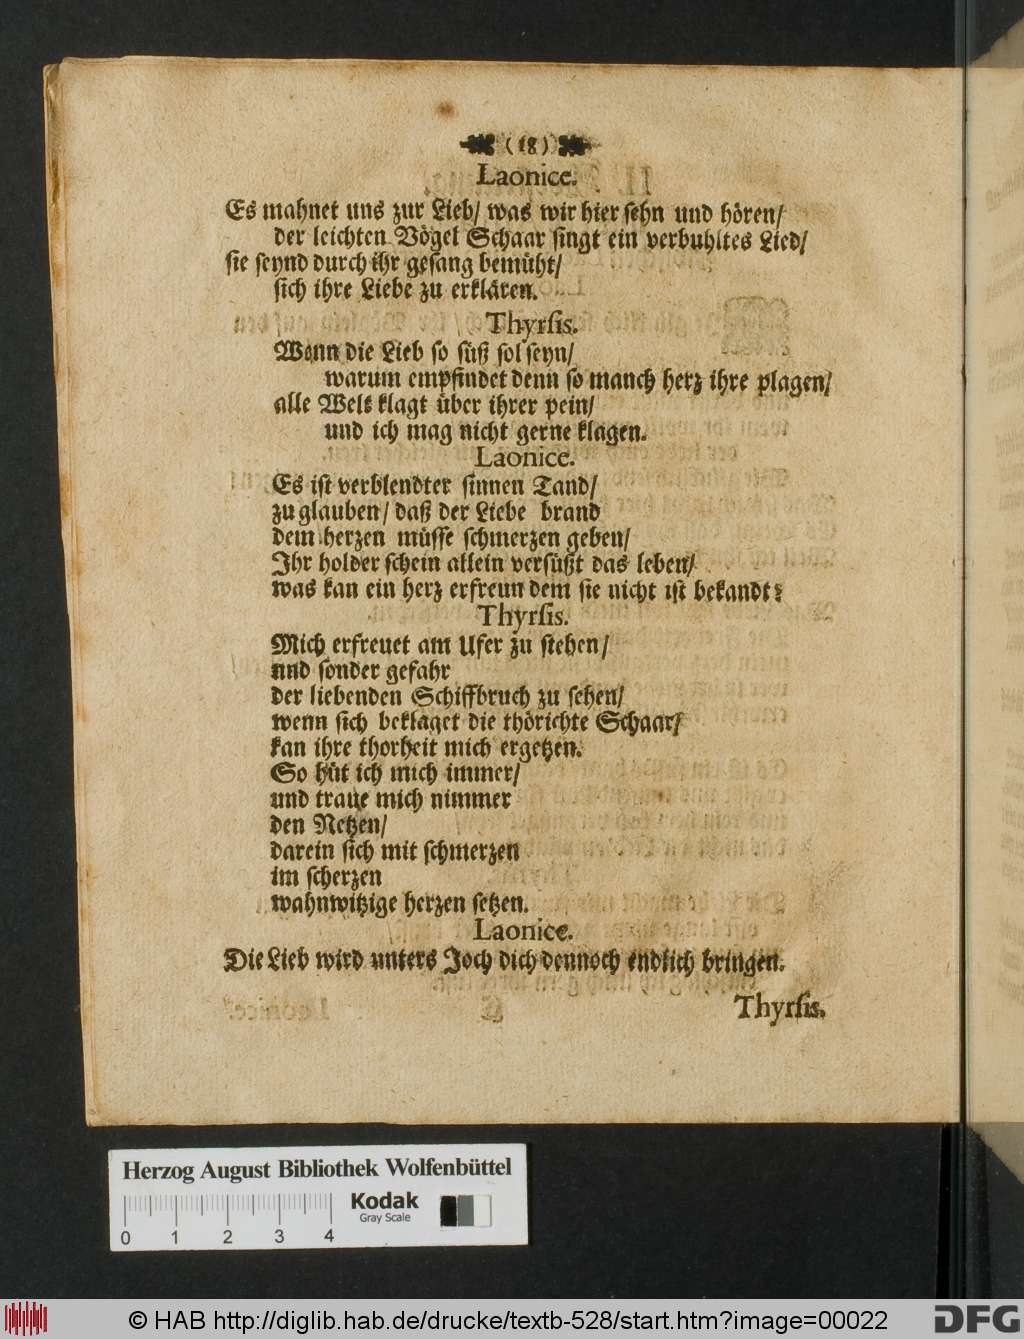 (18)
Laonice.
Es mahnet uns zur Lieb/ was wir hier sehn und hören/
der leichten Vögel Schaar singt ein verbuhltes Lied/
sie seynd durch ihr gesang bemüht/
sich ihre Liebe zu erklären.
Thyrsis.
Wann die Lieb so süß sol seyn/
warum empfindet denn so manch herz ihre plagen/
alle Welt klagt über ihrer pein/
und ich mag nicht gerne klagen.
Laonice.
Es ist verblendter sinnen Tand/
zu glauben/ daß der Liebe brand
dem herzen müsse schmerzen geben/
Ihr holder schein allein versüßt das leben/
was kan ein herz erfreun dem sie nicht ist bekandt?
Thyrsis.
Mich erfreuet am Ufer zu stehen/
und sonder gefahr
der liebenden Schiffbruch zu sehen/
wenn sich beklaget die thörichte Schaar/
kan ihre thorheit mich ergetzen.
So hüt ich mich immer/
und traue mich nimmer
den Netzen/
darein sich mit schmerzen
im scherzen
wahnwitzige herzen setzen.
Laonice.
Die Lieb wird unters Joch dich dennoch endlich bringen.
Thyrsis.
Herzog August Bibliothek Wolfenbüttel
Kodak
Gray Scale
0 1 2 3 4
© HAB http://diglib.hab.de/drucke/textb-528/start.htm?image=00022
DFG